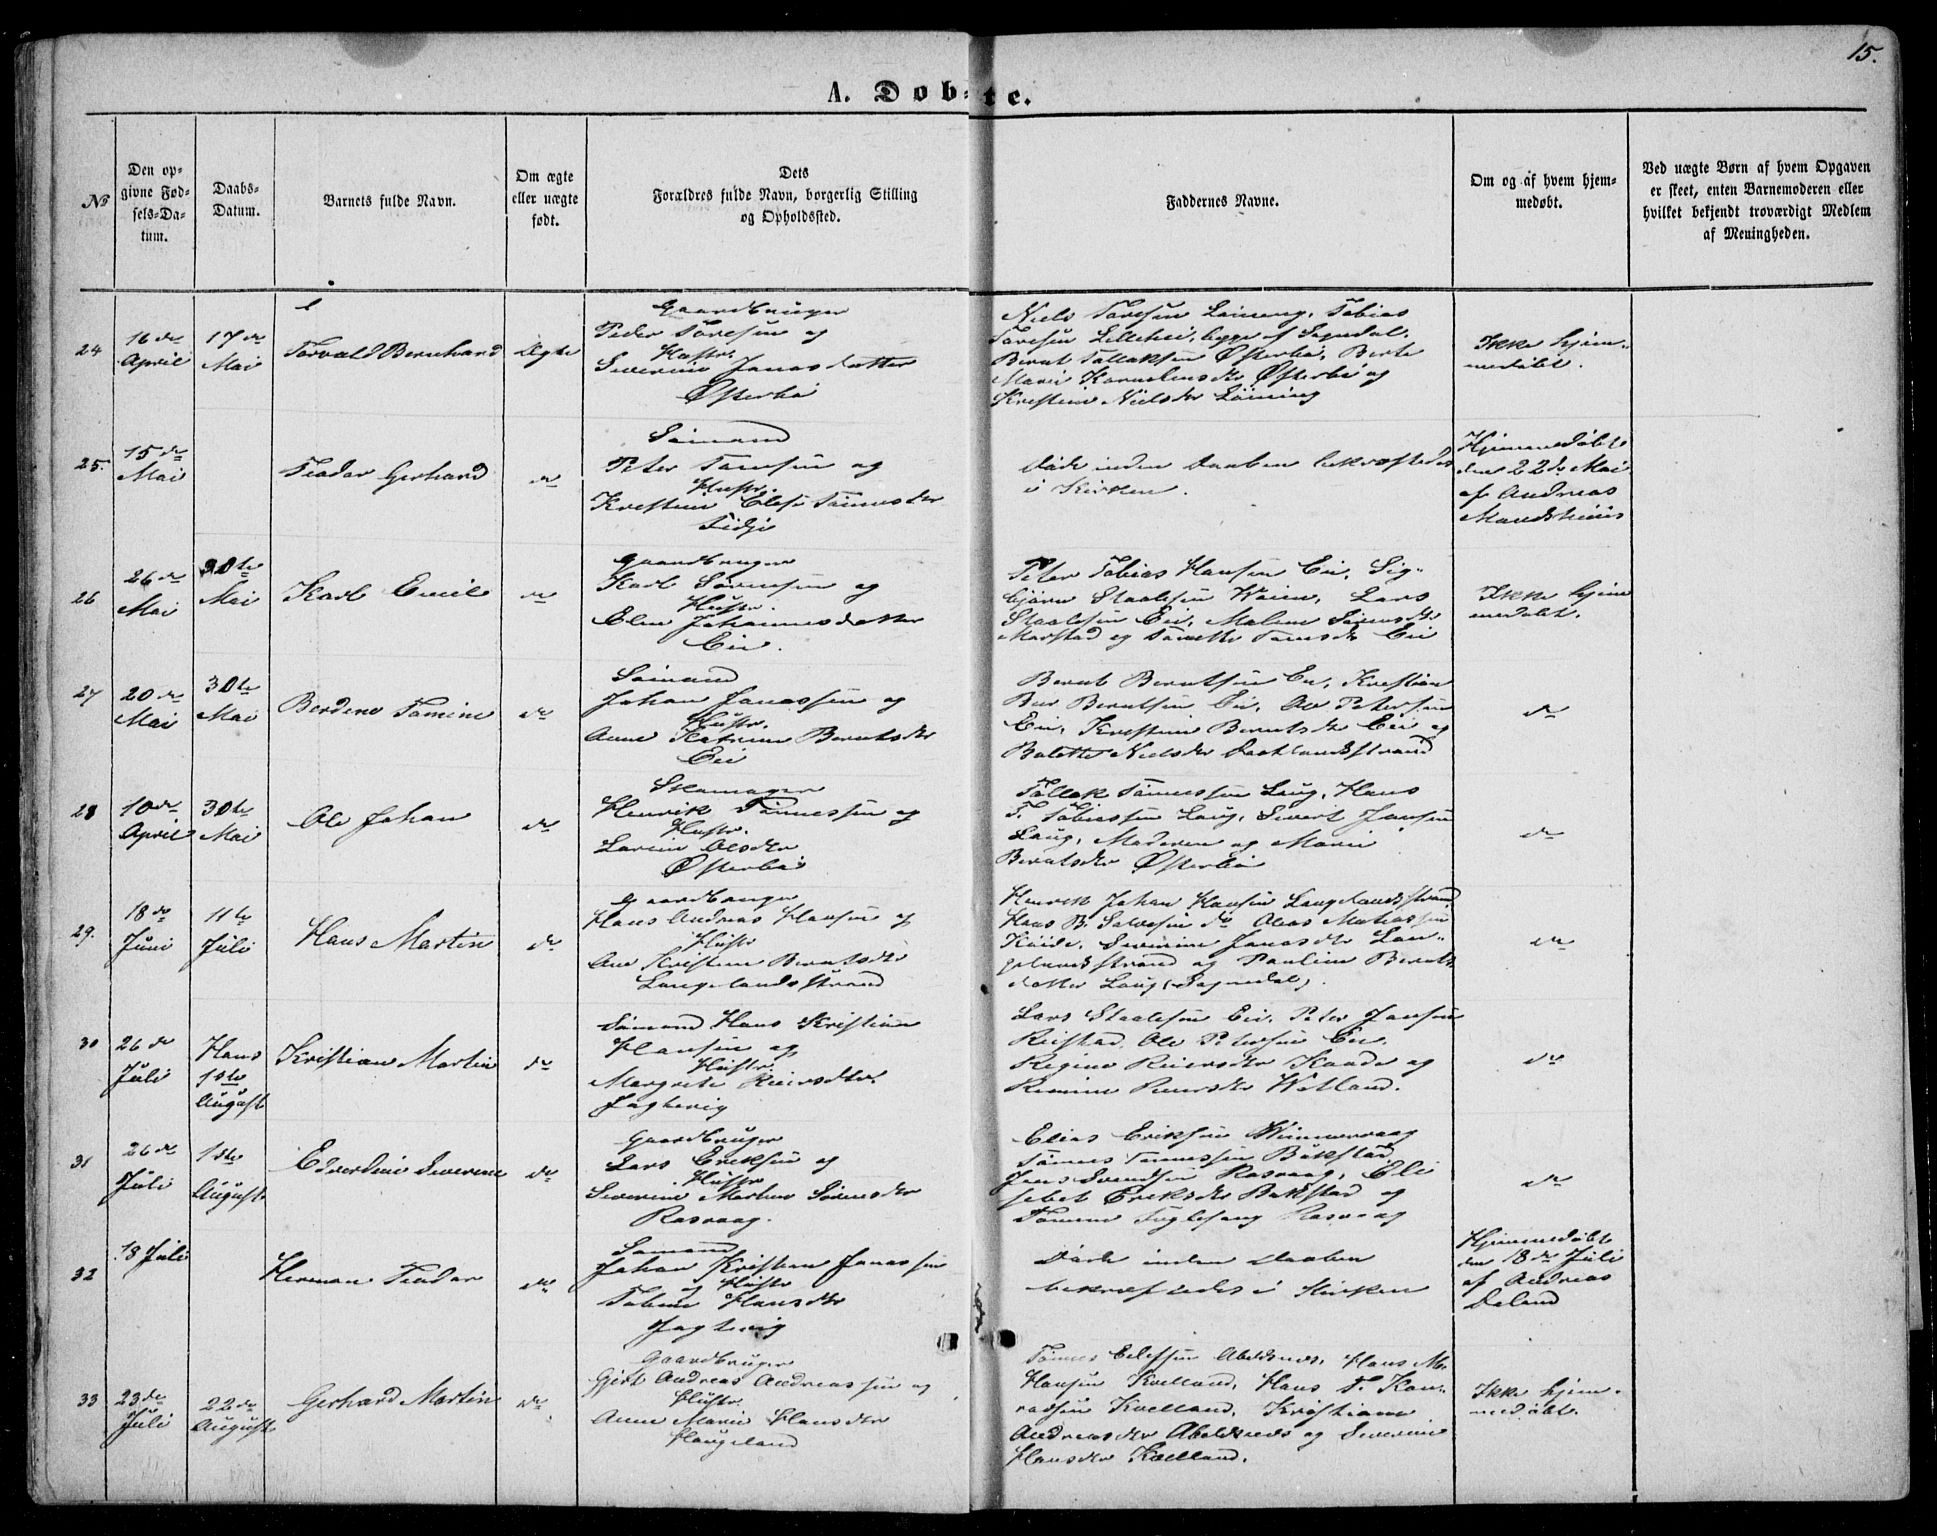 15.
A. Døb-te.
№
Den op-
givne Fød-
sels-Da-
tum.
Daabs-
Datum.
Barnets fulde Navn.
Om ægte
eller uægte
født.
Dets
Forældres fulde Navn, borgerlig Stilling
og Opholdssted.
Faddernes Navne.
Om og af hvem hjem-
medøbt.
Ved uægte Børn af hvem Opgaven
er skeet, enten Barnemoderen eller
hvilket bekjendt troværdigt Medlem
af Menigheden.
24
16de
April
17de
Mai
Torvald Bernhard
Ægte
Gaardbruger
Peder Toresen og
Hustr.
Severine Jonasdatter
Østerbø
Niels Toresen Løining, Tobias
Toresen Lillehei, begge af Sogndal,
Bernt Tollaksen Østerbø, Berte
Marie Korneliusdtr Østerbø og
Kristine Nielsdtr Løining
Ikke hjem-
medøbt.
25.
15de
Mai
Teodor Gerhard
do
Sømand
Peter Tønnesen og
Hustr.
Kristine Elise Tønnesdtr
Døde inden Daaben bekræftedes
i Kirken.
Hjemmedøbt
den 22de Mai
af Andreas
26
26de
Mai
30te
Mai
Karl Emil
do
Gaardbruger
Karl Sørensen og
Hustr.
Elen Johannesdatter
Eie.
Peter Tobias Hansen Eie, Sig-
bjørn Staalesen Lars
Staalesen Eie, Malene Sørensdtr
Eie
Ikke hjem
medøbt.
27
20de
Mai
30te
Mai
Berdene Tomine
do
Sømand
Johan Jonassen og
Hustr.
Anne Katrine Berntsdtr
Eie
Bernt Berntsen Eie, Kristian
Berntsen Eie, Ole Petersen
Eie, Kristine Berntsdtr Eie og
Nielsdtr
do
28
10de
April
30te
Mai
Ole Johan
do
Skomager
Henrik Tønnessen og
Hustr.
Larine Olsdtr
Østerbø
Tollak Tønnessen Laug, Hans
T. Tobiassen Laug, Sivert Jansen
Laug, Moderen og Marie
Berntsdtr Østerbø
do
29.
18de
Juni
11te
Juli
Hans Martin
do
Gaardbruger
Hans Andreas Hansen og
Hustr
Ane Kristine Berntsdtr
Langelandsstrand
Henrik Johan Hansen Langelandsstrand,
Hans B. Salvesen do Oleas Matiassen
Severine Jonasdtr Lan-
gelandsstrand og Pauline Bernts
datter Laug (Sogndal).
do
30
26de
Juli
Hans
1ste
August
Kristian Martin
do
Sømand Hans Kristian
Hansen og
Hustr.
Margrete Reiersdtr.
Jagtevig
Lars Staalesen Eie, Peter Jansen
Reistad, Ole Petersen Eie.
Regine Reiersdtr og
Reiersdtr Wetland.
do
31
26de
Juli
1ste
August
Edvardine Severine
do
Gaardbruger
Lars Eriksen og
Hustr
Severine Marthea Sørensdtr
Rasvaag.
Elias Eriksen
Tønnes Tønnessen Bakstad,
Jens Svendsen Rasvaag, Eli
sabet Eriksdtr Bakstad og
Fuglesang Rasvaag
do
32
18 Juli
Herman Teodor
do
Sømand
Johan Kristian Jonassen
og Hustr
Tobine Hansdtr
Jagtevig
Døde inden Daaben
bekræftedes i Kirken
Hjemmedøbt
den 18de Juli
af Andreas
Døland
33
23de
Juli
22de
August
Gerhard Martin
do
Gaardbruger
Gjert Andreas Andreassen og
Hustr.
Anne Marie Hansdtr
Haugeland
Tønnes Eilefsen Abelsnes, Hans M.
Hansen Kvelland, Hans T. Kon-
radsen Kvelland, Kristiane
Andreasdtr Abelsnes og Severine
Hansdtr Kvelland.
Ikke hjem-
medøbt.